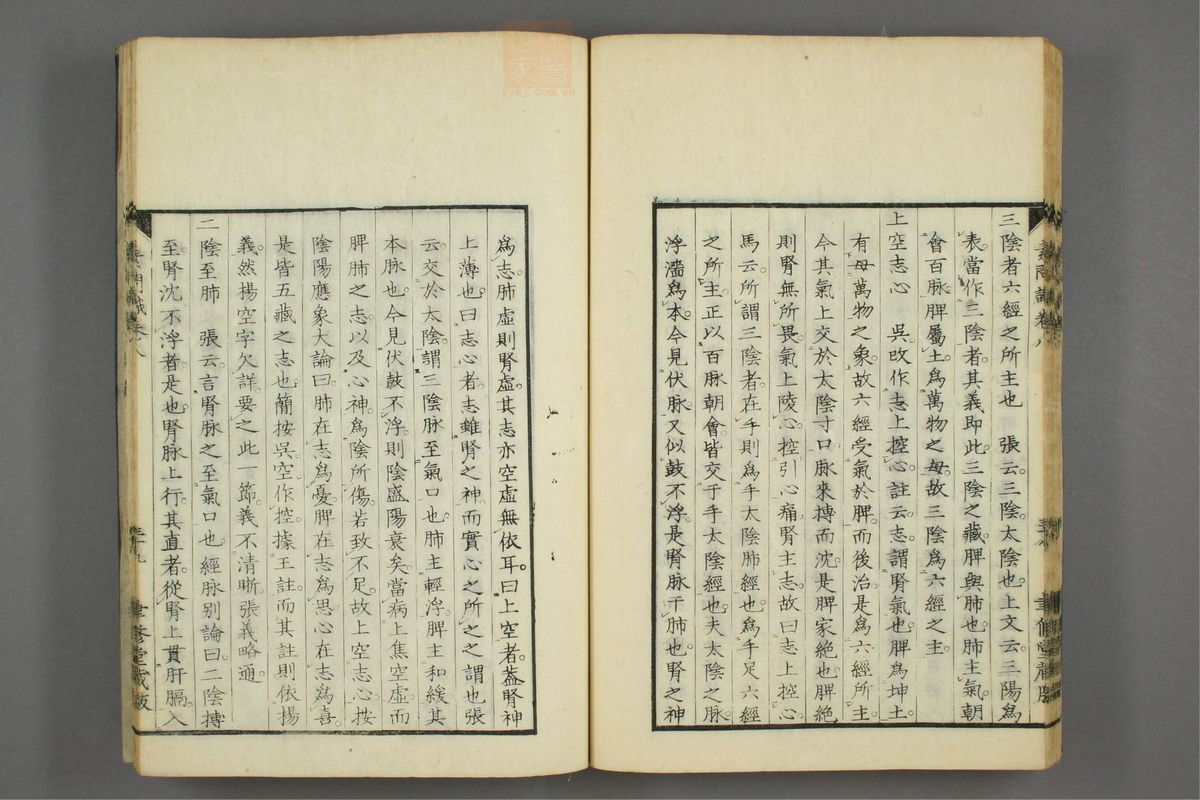 三陰者六經之所主也　張云。三陰。太陰也。上文云。三陽爲
表。當作三陰者。其義即此。三陰之藏。脾與肺也。肺主氣。朝
會百脉。脾屬土。爲萬物之母。故三陰爲六經之主。
上空志心　吳改作志上控心。註云。志。謂腎氣也。脾爲坤土。
有母萬物之象。故六經受氣於脾。而後治。是爲六經所主。
今其氣上交於太陰寸口。脉來搏而沈。是脾家絶也。脾絶
則腎無所畏。氣上陵心。控引心痛。腎主志。故曰志上控心。
馬云。所謂三陰者。在手則爲手太陰肺經也。爲手足六經
之所主。正以百脉朝會。皆交于手太陰經也。夫太陰之脉。
浮濇爲本。今見伏脉。又似鼓不浮。是腎脉干肺也。腎之神
爲志。肺虛則腎虛。其志亦空虛無依耳。曰上空者。蓋腎神
上薄也。曰志心者。志雖腎之神。而實心之所之之謂也。張
云。交於太陰。謂三陰脉至氣口也。肺主輕浮。脾主和緩。其
本脉也。今見伏鼓不浮。則陰盛陽衰矣。當病上焦空虛。而
脾肺之志。以及心神。爲陰所傷。若致不足。故上空志心。按
陰陽應象大論曰。肺在志爲憂。脾在志爲思。心在志爲喜。
是皆五藏之志也。簡按吳空作控。據王註。而其註則依揚
義。然揚空字欠詳。要之此一節。義不清晰。張義略通。
二陰至肺　張云。言腎脉之至氣口也。經脉別論曰。二陰搏
至。腎沈不浮者是也。腎脉上行。其直者。從腎上貫肝膈。入